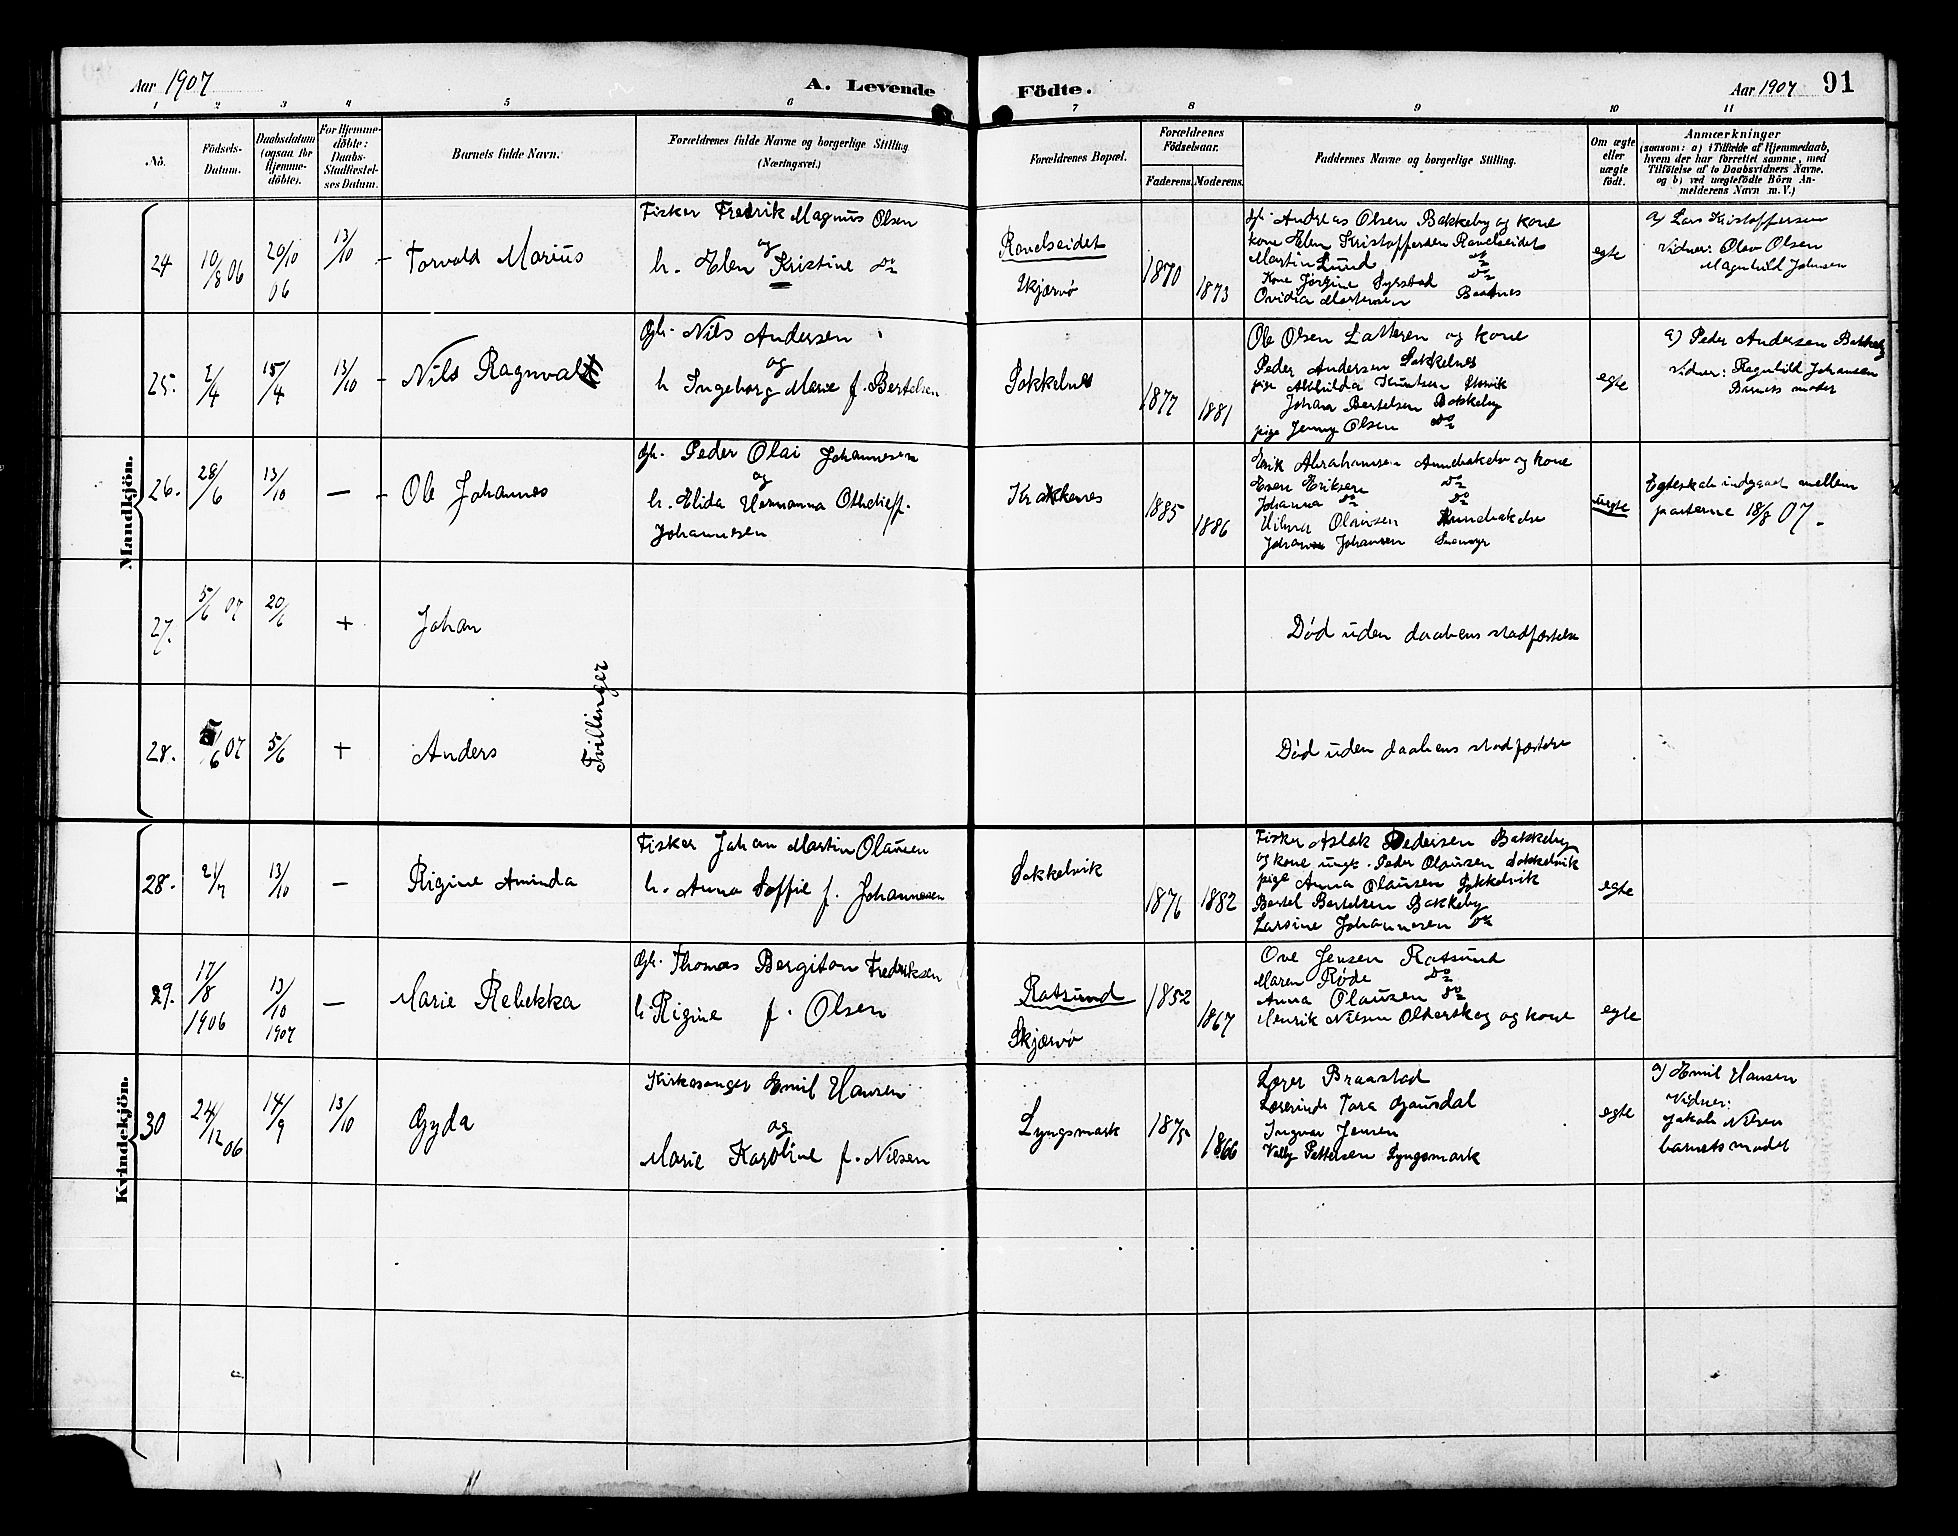 Aar 1907
A. Levende
Födte.
Aar 1907 91
1 2 3 4 5 6 7 8 9 10 11
No.
Födsels-Datum.
Daabsdatum (ogsaa for Hjemme-döbte).
For Hjemme-döbte: Daabs-Stadfæstel-ses Datum.
Barnets fulde Navn.
Forældrenes fulde Navne og borgerlige Stilling
(Næringsvei.)
Forældrenes Bopæl.
Forældrenes Födselsaar.
Faderens. Moderens.
Faddernes Navne og borgerlige Stilling.
Om ægte eller uægte födt.
Anmærkninger
(saasom: a) i Tilfælde af Hjemmedaab,
hvem der har forrettet samme, med
Tilföielse af to Daabsvidners Navne,
og b) ved uægtefödte Börn An-
melderens Navn m. V.)
Mandkjön.
24 10/8 06 20/10 06 13/10 Torvald Marius
Fisker Fredrik Magnus Olsen
og
h. Elen Kristine do
Ravelseidet
Skjærvö
1870 1873
Gbr. Andreas Olsen Bakkeby og kone
kone Elen Kristoffersen Ravelseidet
Martin Lund do
Kone Jørgine Sylstad do
Ovidia Mortensen Baatnes
egte
a) Lars Kristoffersen
Vidner: Olav Olsen
Magnhild Johnsen
25. 2/4 15/4 13/10 Nils Ragnvald
Gbr. Nils Andersen
og
h Ingeborg Marie f. Bertelsen
Sokkelnes
1877 1881
Ole Olsen Latteren og kone
Peder Andersen Sokkelnes
pige Knutsen
Johan Bertelsen Bakkeby
pige Jenny Olsen do
egte
a) Peder Andersen Bakkeby
Vidner: Ragnhild Johansen
Barnets moder
26. 28/6 13/10 — Ole Johannes
Gbr. Peder Olai Johannesen
og
h. Elida Hermanna f.
Johannesen
Krakkenes
1885 1886
Erik Abrahamsen og kone
Eriksen do
Johanna do do
Hilmar Olausen
Johan Johansen
uægte
Egteskab indgaaet mellem
parterne 18/8 07.
27. 5/6 07 20/6 + Johan
Tvillinger
Død uden daabens stadfæstelse
28. 5/6 07 5/6 + Anders
Død uden daabens stadfæstelse
Kvindekjön.
28. 21/7 13/10 — Rigine Aminda
Fisker Johan Martin Olausen
h. Anna Soffie f. Johannesen
Sokkelvik
1876 1882
Fisker Aslak Pedersen Bakkeby
og kone ungk. Peder Olausen Sokkelvik
pige Anna Olausen Sokkelvik
Bertel Bertelsen Bakkeby
Larsine Johannesen do
egte
29. 17/8 1906 13/10 1907 — Marie Rebekka
Gbr. Thomas Bergiton Fredriksen
h. Rigine f. Olsen
Rotsund
Skjærvö
1852 1867
Ove Jensen Rotsund
Maren Røde do
Anna Olausen do
Henrik Nilsen Olderskog og kone
egte
30 24/12 06 14/9 13/10 Gyda
Kirkesanger Emil Hansen
og
Marie Karoline f. Nilsen
Lyngsmark
1875 1866
Lærer Braastad
Lærerinde Tora Gausdal
Ingvar Jensen
Valby Pettersen Lyngsmark
egte
a) Emil Hansen
Vidner:
Jakob Nilsen
barnets moder